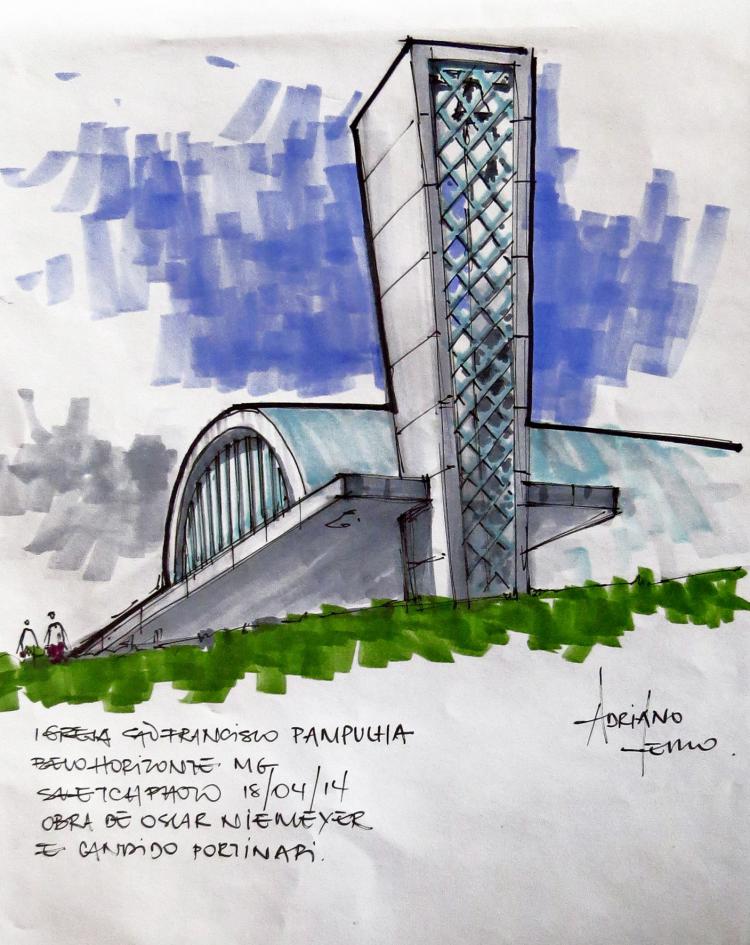 IGREJA SÃO FRANCISCO PAMPULHA
BELO HORIZONTE. MG
SKETCHPHOTO 18/04/14
OBRA DE OSCAR NIEMEYER
E CANDIDO PORTINARI.
ADRIANO